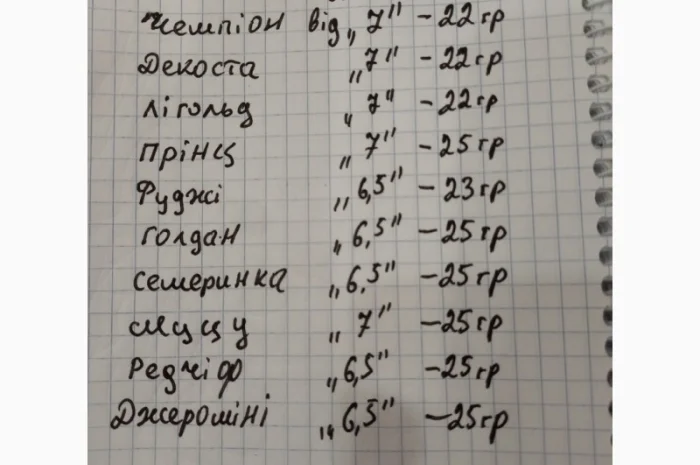 Чемпіон від „7" - 22 гр
Декоста „7" - 22 гр
Лігольд „7" - 22 гр
Прінц „7" - 25 гр
Фуджі „6,5" - 23 гр
Голдан „6,5" - 25 гр
Семеринка „6,5" - 25 гр
Муцу „7" - 25 гр
Редчіф „6,5" - 25 гр
Джероміні „6,5" - 25 гр